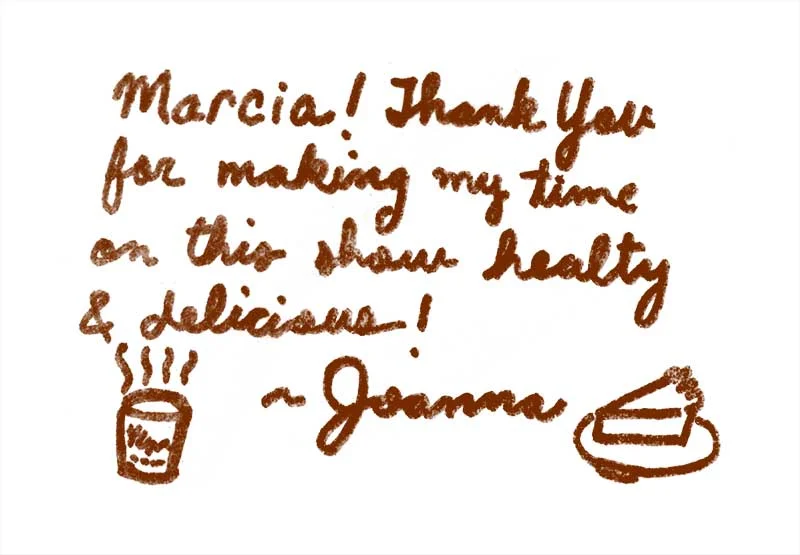 Marcia! Thank You
for making my time
on this show healty
& delicious!
~ Joanna